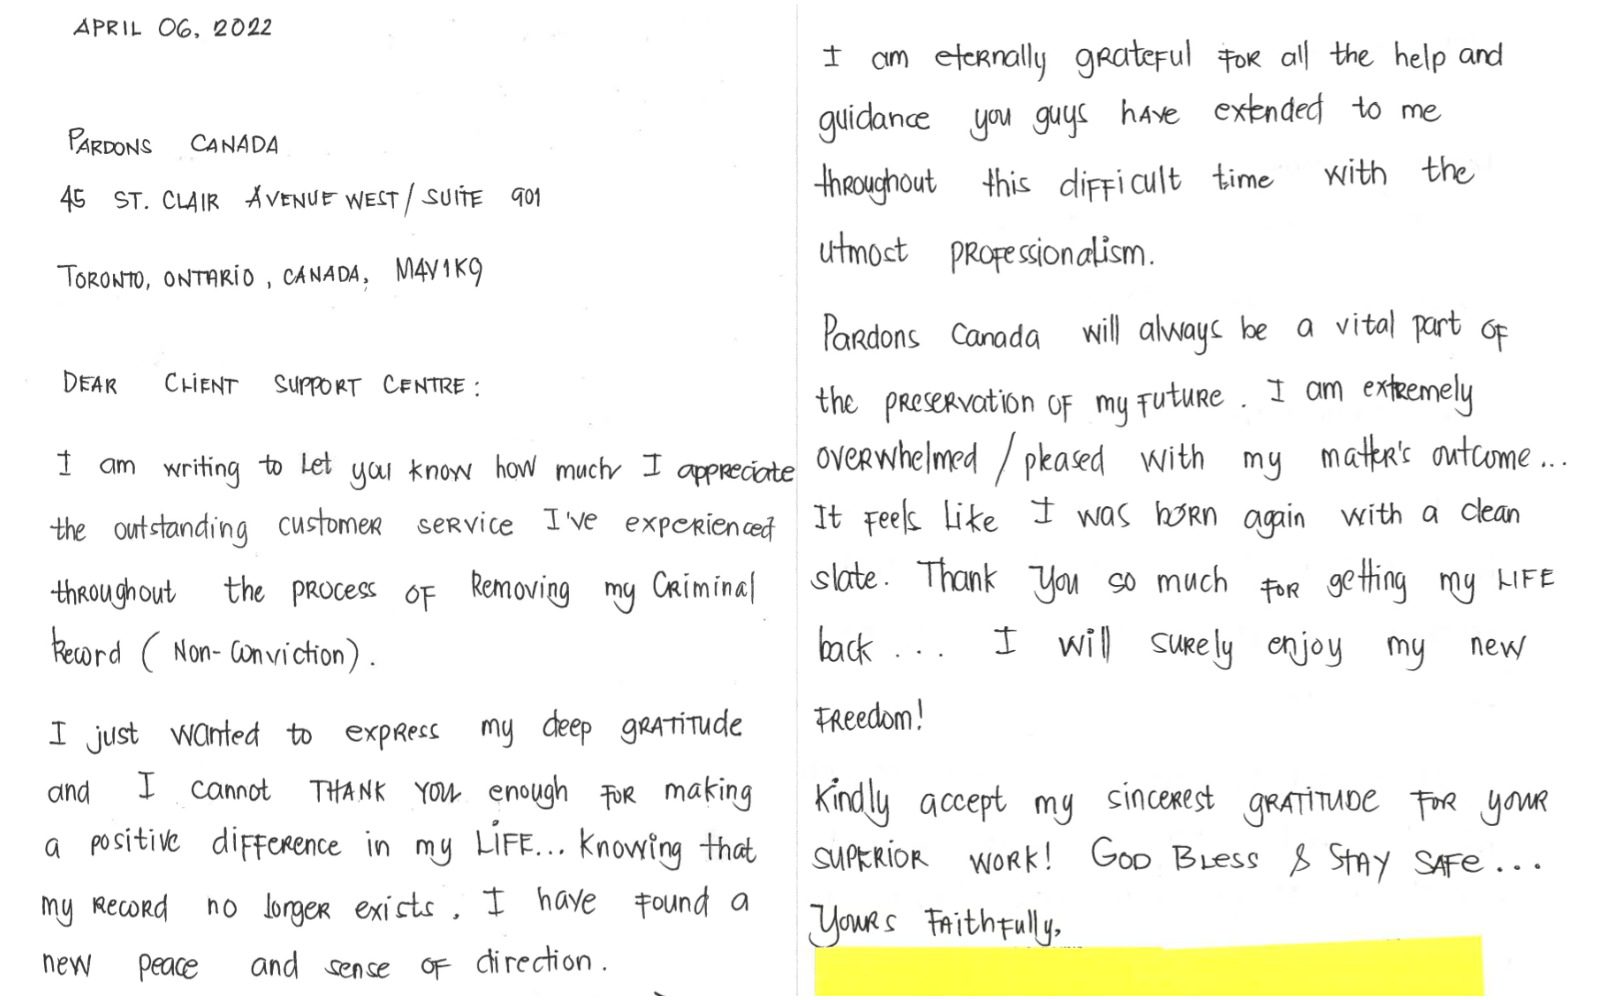 APRIL 06, 2022
PARDONS CANADA
45 ST. CLAIR AVENUE WEST/SUITE 901
TORONTO, ONTARIO, CANADA, M4V1K9
DEAR CLIENT SUPPORT CENTRE:
I am writing to let you know how much I appreciate
the outstanding customer service I've experienced
throughout the process of Removing my Criminal
Record (Non-Conviction).
I just wanted to express my deep GRATITUDE
and I cannot THANK YOU enough for making
a positive difference in my LIFE... Knowing that
my RECORD no longer exists. I have found a
new peace and sense of direction.
I am eternally grateful for all the help and
guidance you guys have extended to me
throughout this difficult time with the
utmost professionalism.
Pardons Canada will always be a vital part of
the preservation of my future. I am extremely
overwhelmed / pleased with my matter's outcome...
It feels like I was born again with a clean
slate. Thank You so much for getting my LIFE
back... I will surely enjoy my new
freedom!
Kindly accept my sincerest GRATITUDE for your
SUPERIOR WORK! GOD BLESS & STAY SAFE...
Yours Faithfully,